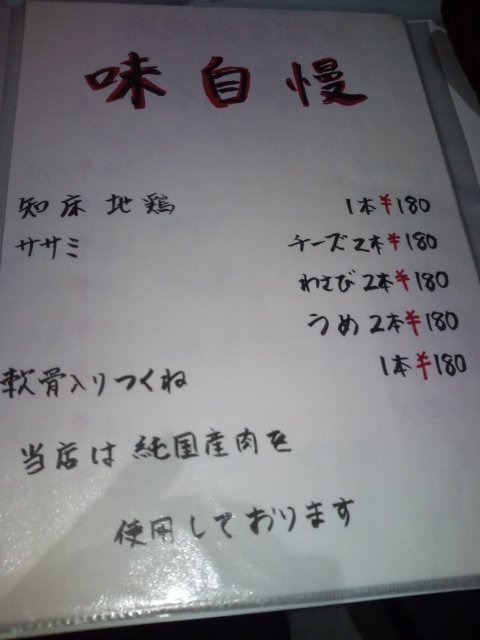 味自慢
知床地鶏 1本¥180
ササミ チーズ2本¥180
わさび2本¥180
うめ2本¥180
軟骨入りつくね 1本¥180
当店は純国産肉を
使用しております